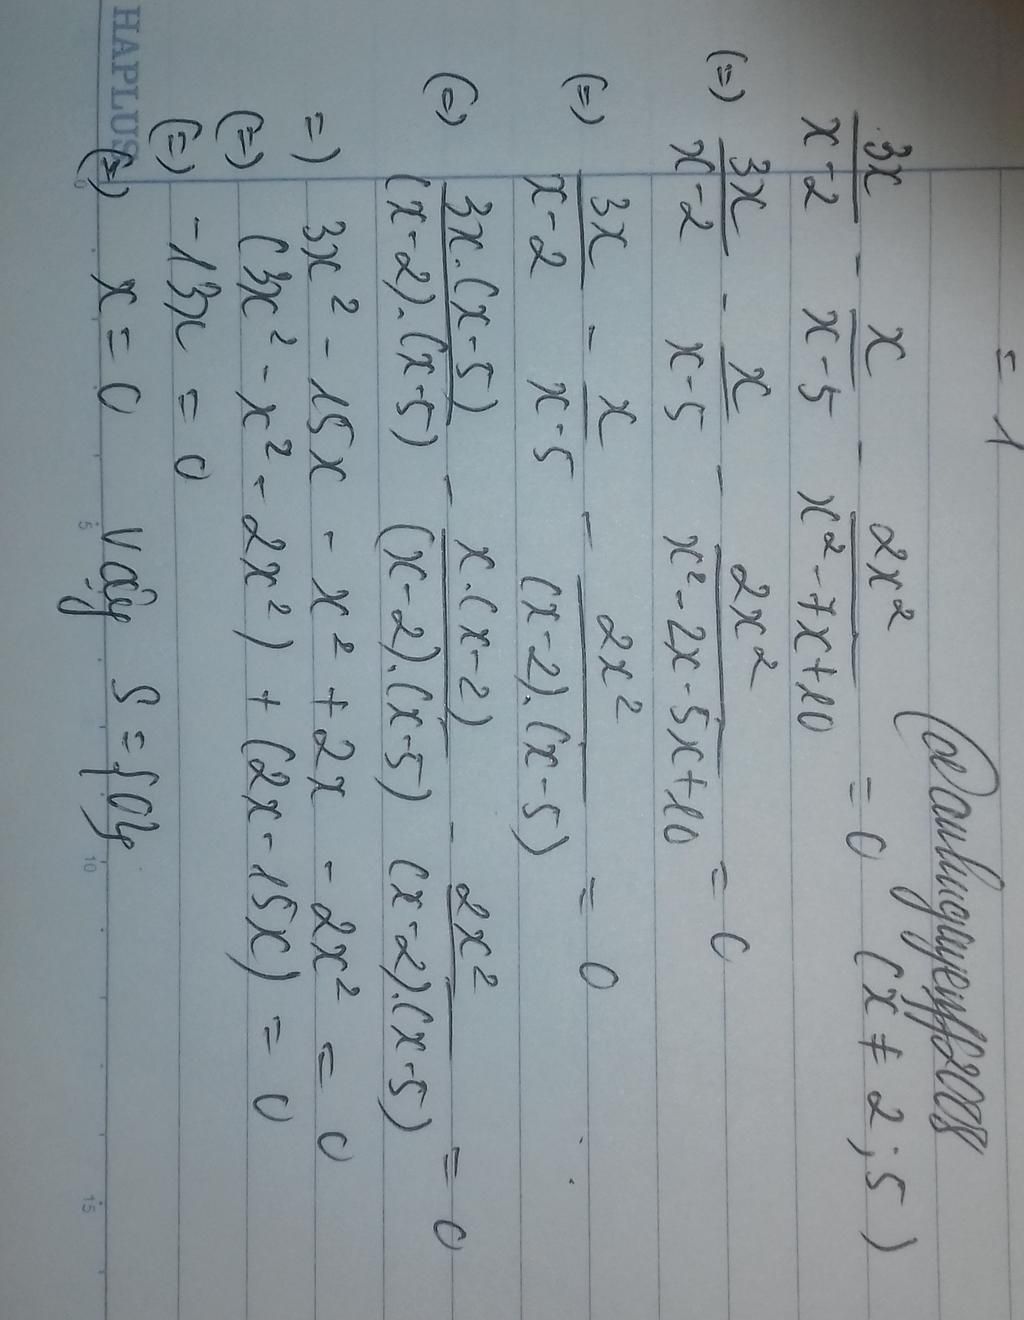 = 1
Doanhnguyenf2008
3x/(x-2) - x/(x-5) - 2x²/(x²-7x+10) = 0 (x ≠ 2 ; 5)
(=) 3x/(x-2) - x/(x-5) - 2x²/(x²-2x-5x+10) = 0
(=) 3x/(x-2) - x/(x-5) - 2x²/((x-2).(x-5)) = 0
(=) 3x.(x-5)/((x-2).(x-5)) - x.(x-2)/((x-2).(x-5)) - 2x²/((x-2).(x-5)) = 0
=) 3x² - 15x - x² + 2x - 2x² = 0
(=) (3x² - x² - 2x²) + (2x - 15x) = 0
(=) -13x = 0
(=) x = 0 Vậy S = {0}
HAPLUS
0 5 10 15